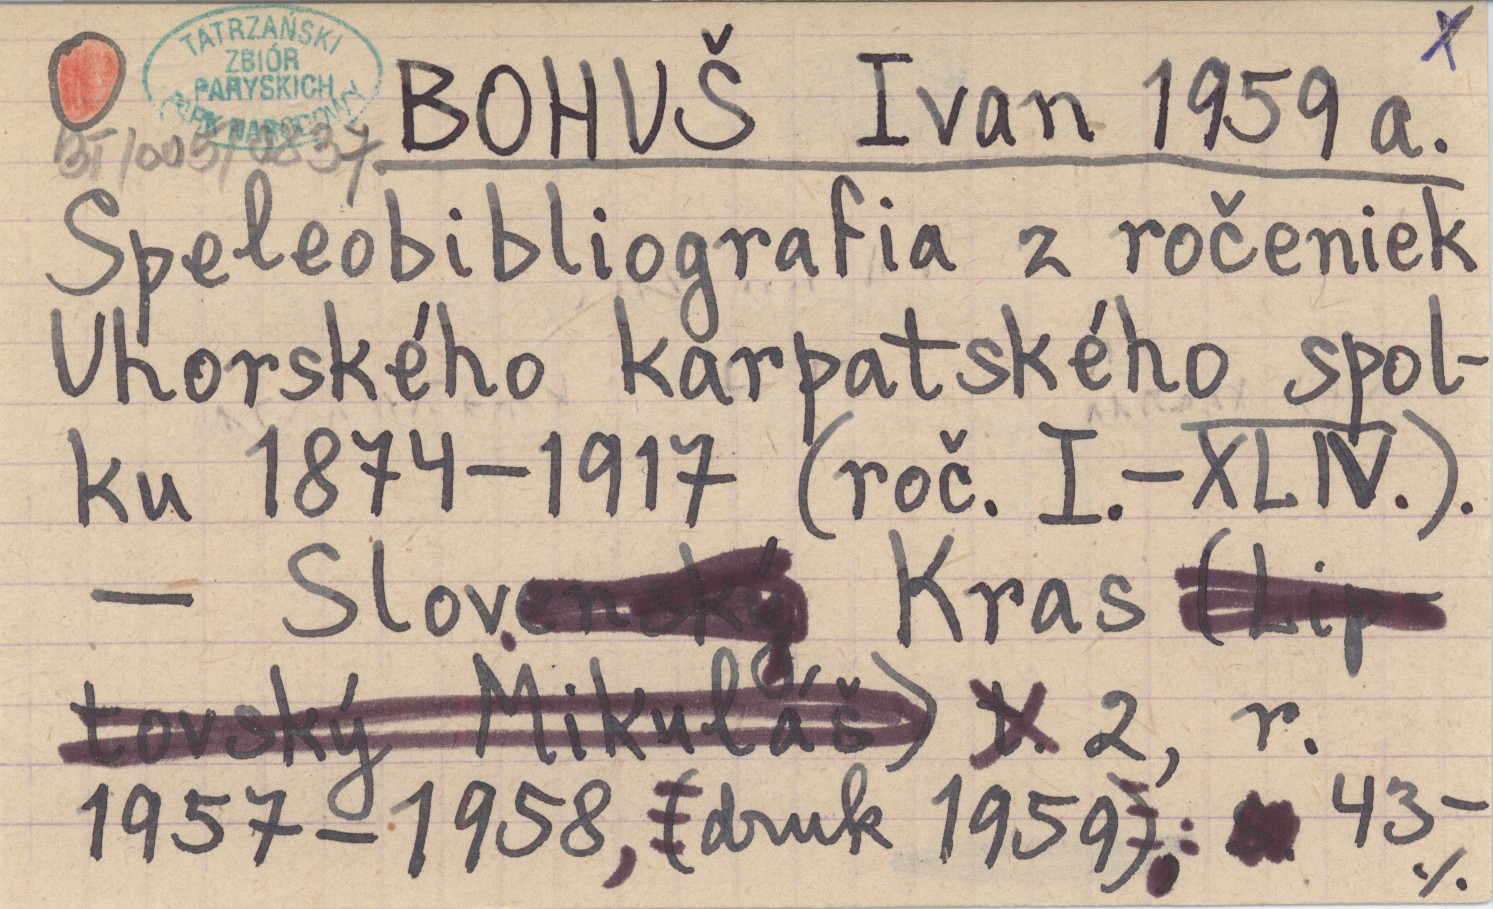 TATRZAŃSKI
ZBIÓR
PARYSKICH
PARK NARODOWY
X
BT/005/0837
BOHUŠ Ivan 1959 a.
Speleobibliografia z ročeniek
Uhorského karpatského spol-
ku 1874–1917 (roč. I.–XLIV.).
— Slovenský Kras (Lip-
tovský Mikuláš) t. 2, r.
1957–1958, (druk 1959); s. 43–
./.